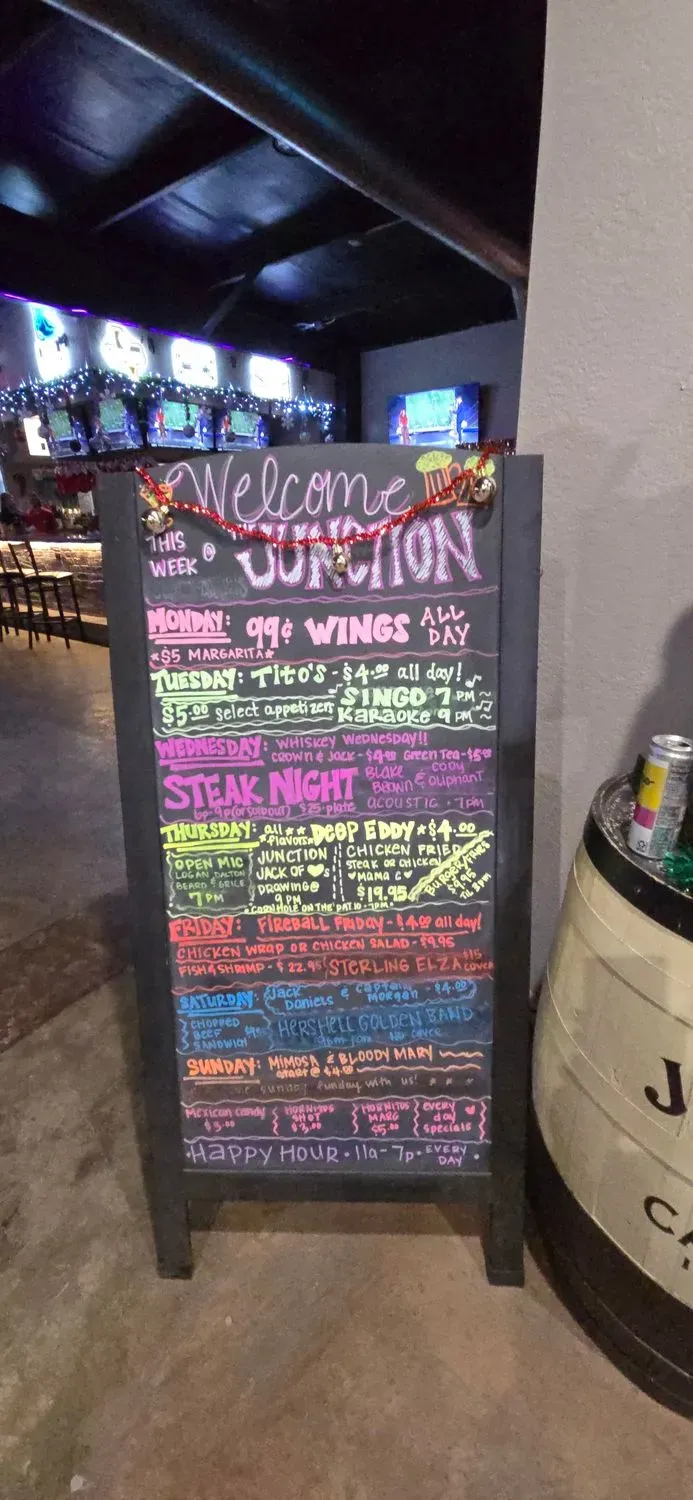 Welcome
THIS WEEK @
JUNCTION
MONDAY: 99¢ WINGS ALL DAY
★$5 MARGARITA★
TUESDAY: TITO'S - $4.00 all day!
$5.00 select appetizers
SINGO 7 PM
Karaoke 9 PM
WEDNESDAY: WHISKEY WEDNESDAY!!
CROWN & JACK - $4.00 Green Tea - $5.00
STEAK NIGHT
6p-9p (or sold out) $25 plate
BLAKE BROWN & CODY OLIPHANT
ACOUSTIC · 7PM
THURSDAY: all ★★ flavors★ DEEP EDDY ★$4.00
OPEN MIC
LOGAN DALTON
7PM
JUNCTION
JACK OF ♥s
DRAWING @
9 PM
CHICKEN FRIED
STEAK OR CHICKEN
♥MAMA C♥
$19.95
BURGER/FRIES
$9.95
TIL 3PM
★CORNHOLE ON THE PATIO - 7PM★
FRIDAY: FIREBALL FRIDAY - $4.00 all day!
CHICKEN WRAP OR CHICKEN SALAD - $9.95
FISH & SHRIMP - $22.95
STERLING ELZA $15 COVER
SATURDAY: Jack Daniels & Captain Morgan - $4.00
CHOPPED BEEF SANDWICH
HERSHELL GOLDEN BAND
SUNDAY: MIMOSA & BLOODY MARY
START @ $4.00
sunday funday with us!
Mexican candy
$3.00
HORNITOS
SHOT
$3.00
HORNITOS
MARG
$5.00
every
day
specials
·HAPPY HOUR · 11a - 7p · EVERY DAY ·
J
CA